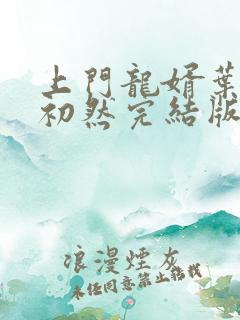 上門龍婿葉
初然完結版
浪漫煙灰
未经同意禁止转载